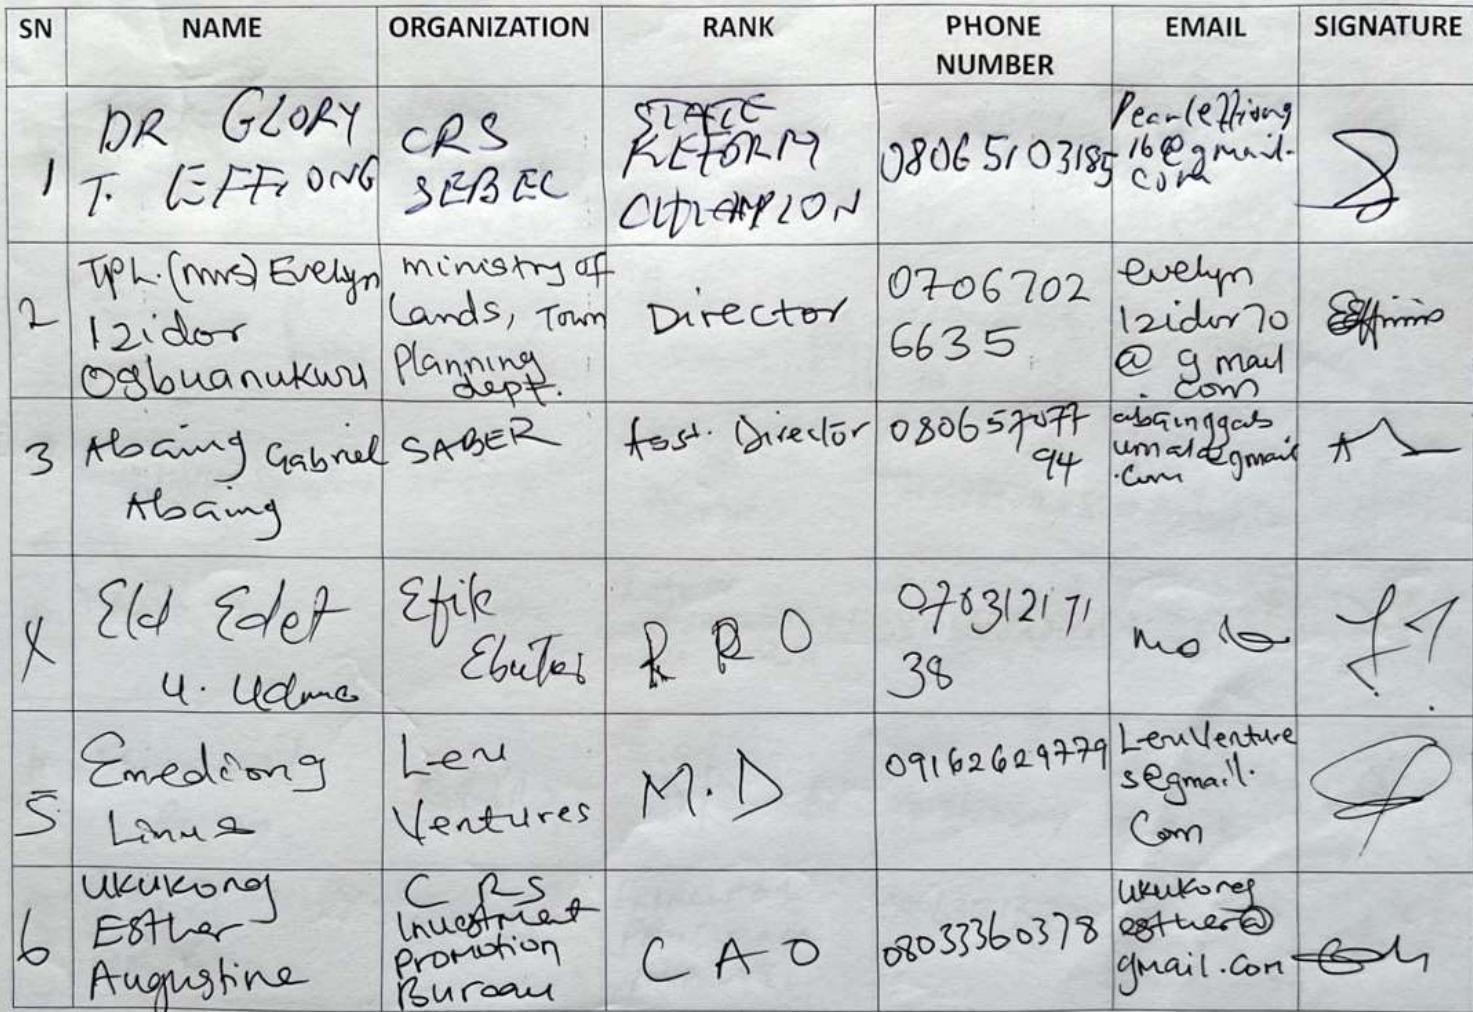 SN NAME ORGANIZATION RANK PHONE NUMBER EMAIL SIGNATURE
1
DR GLORY
T. EFFIONG
CRS
SEBEC
STATE
REFORM
CHAMPION
08065103185
Pearleffiong
16@gmail.
com
2
TPL. (mrs) Evelyn
Izidor
Ogbuanukwu
ministry of
Lands, Town
Planning
dept.
Director
0706702
6635
evelyn
izidor70
@ gmail
.com
3
Abaing Gabriel
Abaing
SABER
Asst. Director
080657077
94
abainggab
@gmail
.com
4
Eld Edet
U. Udma
Efik
RRO
070312171
38
5
Emediong
Linus
Leru
Ventures
M.D
09162629779
LeruVenture
s@gmail.
Com
6
Ukukong
Esther
Augustine
C RS
Investment
promotion
Bureau
C A O
08033360378
ukukong
esther@
gmail.com